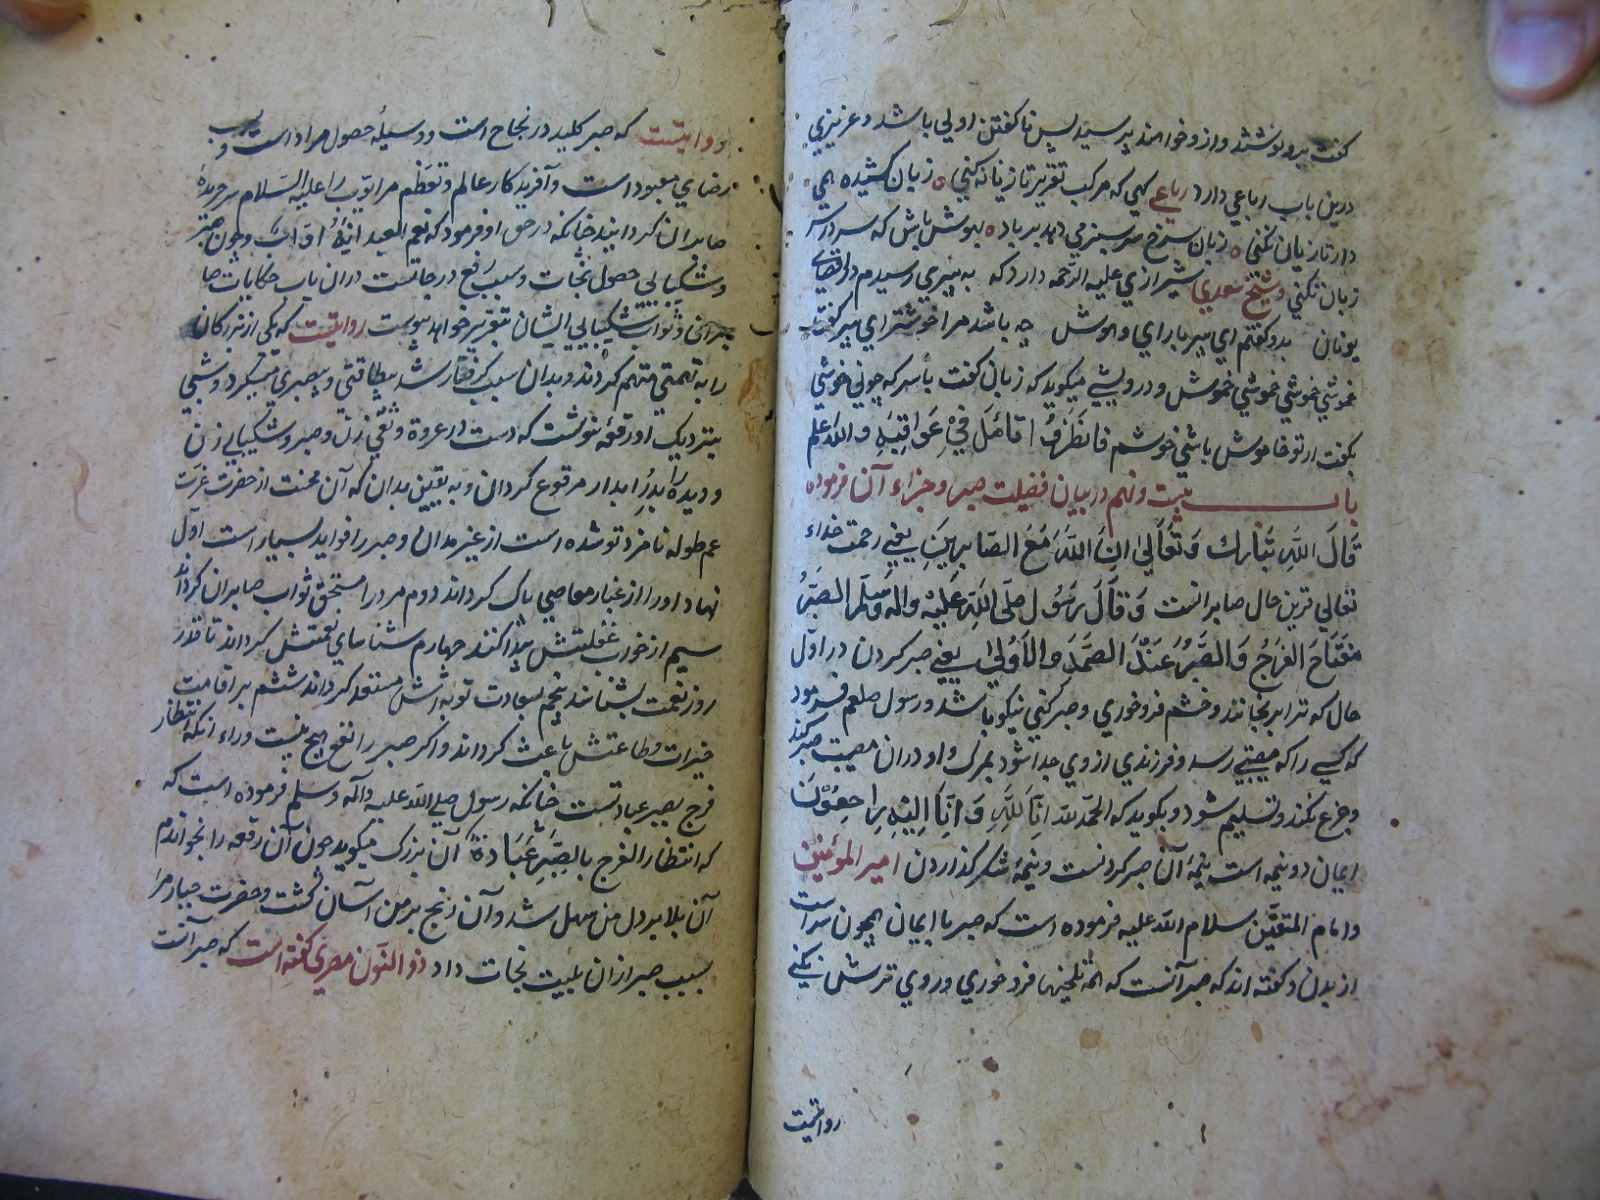 گفت بیرو نوشتند و ازو خواهند پرسید پس ناگفتن اولی باشد و عزیزی
درین باب رباعی دارد رباعی کهی که مرکب تقریر تازیانه کنی ه زبان کشیده همی
دار تا زیان نکنی ه زبان سرخ سر سبز می دهد بر باد ه بهوش باش که سر در سر
زبان نکنی و شیخ سعدی شیرازی علیه الرحمه دارد که به پیری رسیدم در اقصای
یونان بدو گفتم ای پیر با رای و هوش چه باشد مرا خوشتر ای پیر گفت
خموشی خموشی خموشی خموش و درویشی میگوید که زبان گفت با سر که چونی خوشی
بگفت ار تو خاموش باشی خوشم فانظر تأمل فی عواقبه والله اعلم
باب بیست و نهم در بیان فضیلت صبر و جزاء آن فرموده
قال الله تبارک و تعالی ان الله مع الصابرین یعنی رحمت خداء
تعالی قرین حال صابرانست و قال رسول صلی الله علیه واله وسلم الصبر
مفتاح الفرج والصبر عند الصدمة الاولی یعنی صبر کردن در اول
حال که ترا برنجانند و خشم فرو خوری و صبر کنی نیکو باشد و رسول صلعم فرمود
که کسی را که مصیبتی رسد و فرزندی از وی جدا شود بمرگ و او در آن مصیبت صبر کند
و جزع نکند و تسلیم شود و بگوید که الحمدلله انا لله و انا الیه راجعون
ایمان دو نیمه است نیمهٔ آن صبر کردنست و نیمهٔ شکر گذاردن امیر المؤمنین
و امام المتقین سلام الله علیه فرموده است که صبر با ایمان همچون سر است
از بدن و گفته اند که صبر آنست که همه تلخیها فرو خوری و روی ترش نکنی
روایتست
روایتست که صبر کلید در نجاح است و وسیلهٔ حصول مراد است و
رضای معبود است و آفریدکار عالم و تعظم مر ایوب را علیه السلام سر جریدهٔ
صابران گردانید چنانکه در حق او فرمود که نعم العبد انه اواب و چون صبر
و شکیبایی حصول نجات و سبب رفع درجاتست در آن باب حکایات
و ثواب شکیبایی ایشان تقریر خواهد پیوست روایتست که یکی از بزرگان
را به تهمتی متهم کردند و بدان سبب گرفتار شد بیطاقتی و بیصبری میکرد و شبی
بنزدیک او رقعه نوشت که دست در عروة وثقی زن و صبر و شکیبایی زن
و دیده را بدر ابدار مرقوع گردان و به یقین بدان که آن محنت از حضرت عزت
عم طوله نامزد تو شده است از غیر مدان و صبر را فواید بسیار است اول
نهاد او را از غبار معاصی پاک گرداند دوم مرد را مستحق ثواب صابران گرداند
سیم از خواب غفلتش بیدار کند چهارم شناسای نعمتش گرداند تا قدر
روز نعمت بشناسد پنجم بسعادت توبه اش مستعد گرداند ششم بر اقامت
خیرات و طاعتش باعث گرداند و اگر صبر را نفع هیچ نیست وراء آنکه انتظار
فرج بصبر عبادتست چنانکه رسول صلی الله علیه واله وسلم فرموده است که
که انتظار الفرج بالصبر عبادة آن بزرگ میگوید چون آن رقعه را بخواندم
آن بلا بر دل من سهل شد و آن رنج بر من آسان گشت و حضرت جبار مرا
بسبب صبر از آن بلیت نجات داد ذو النون مصری گفته است که صبر آنست